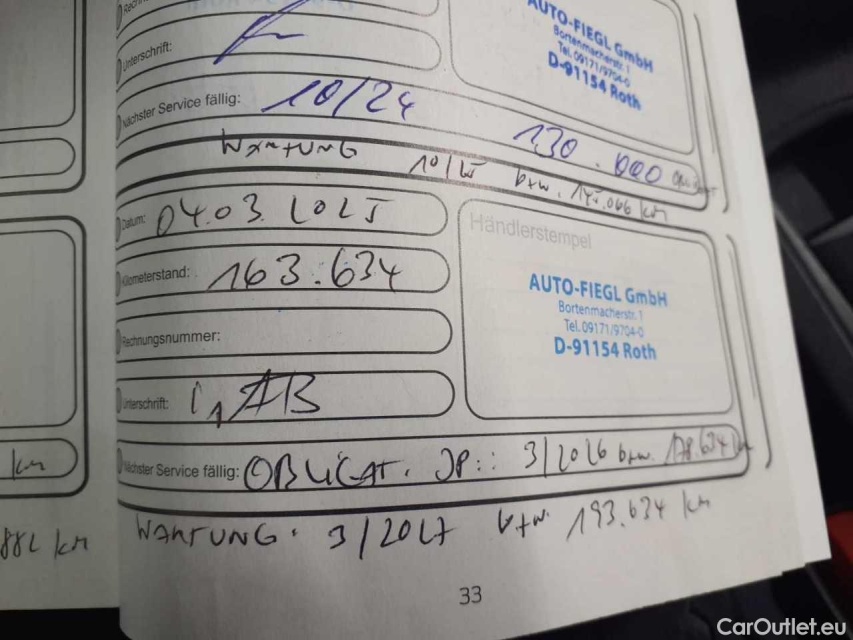 AUTO-FIEGL GmbH
Bortenmacherstr. 1
Tel. 09171/9704-0
D-91154 Roth
Unterschrift:
Nächster Service fällig: 10/24
130.000
WARTUNG 10/25 bzw. 145.066 km
Datum: 04.03.2025
Händlerstempel
Kilometerstand: 163.634
AUTO-FIEGL GmbH
Bortenmacherstr. 1
Tel. 09171/9704-0
D-91154 Roth
Rechnungsnummer:
Unterschrift:
Nächster Service fällig: OBLIGAT. JP.: 3/2026 bzw. 178.634 km
WARTUNG: 3/2027 bzw. 193.634 km
km
882 km
33
CarOutlet.eu